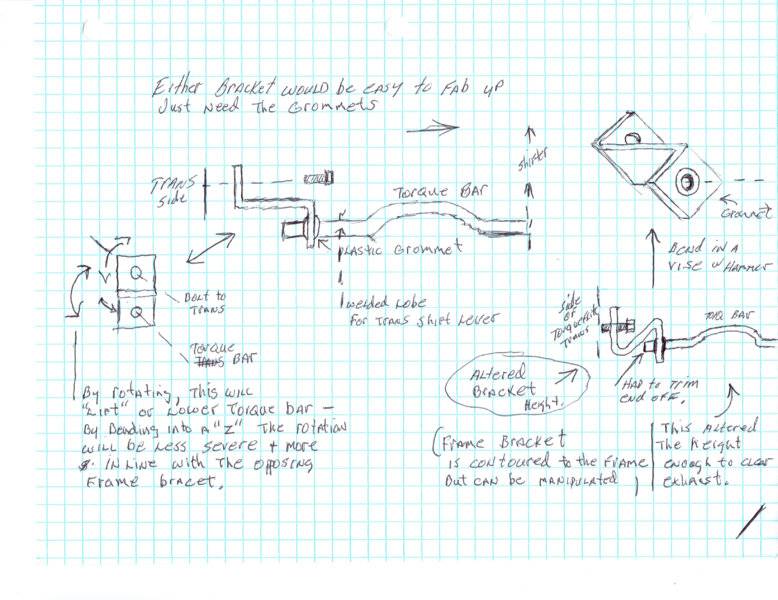 Either Bracket would be easy to Fab up
Just Need The Grommets
Trans
side
Torque Bar
shifter
Grommet
Plastic Grommet
Bend in a
vise w/ Hammer
Bolt to
Trans
Torque
Trans Bar
welded Lobe
For Trans Shift Lever
side
of
Torqueflite
Trans
Torq Bar
Altered
Bracket
Height.
Had to Trim
end off.
By rotating, This will
"Lift" or Lower Torque bar –
By Bending into a "Z" The rotation
will be Less severe & more
in Line with The opposing
Frame bracet.
(Frame Bracket
is contoured to the Frame
But can be manipulated)
This Altered
The Height
enough to clear
exhaust.